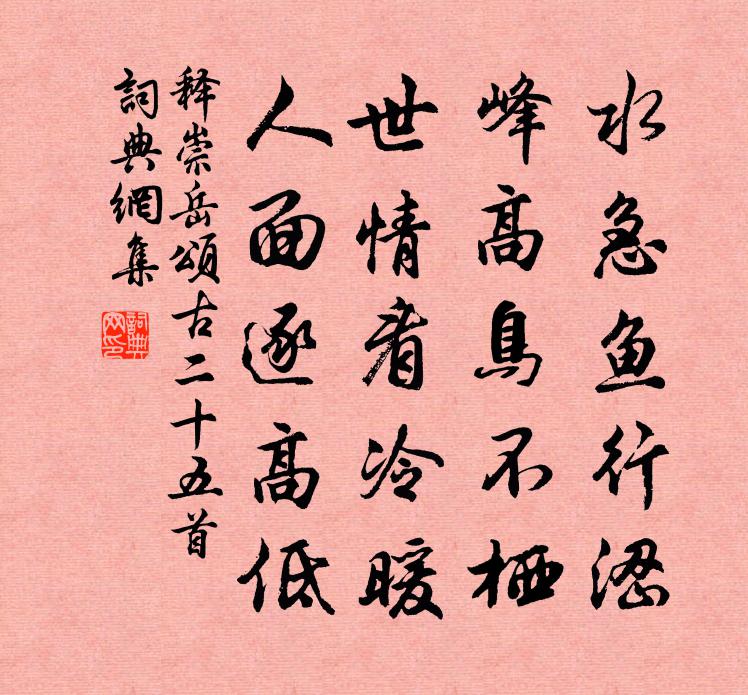 水急鱼行涩
峰高鳥不栖
世情看冷暖
人面逐高低
释崇岳頌古二十五首
詞典網集
詞典网印